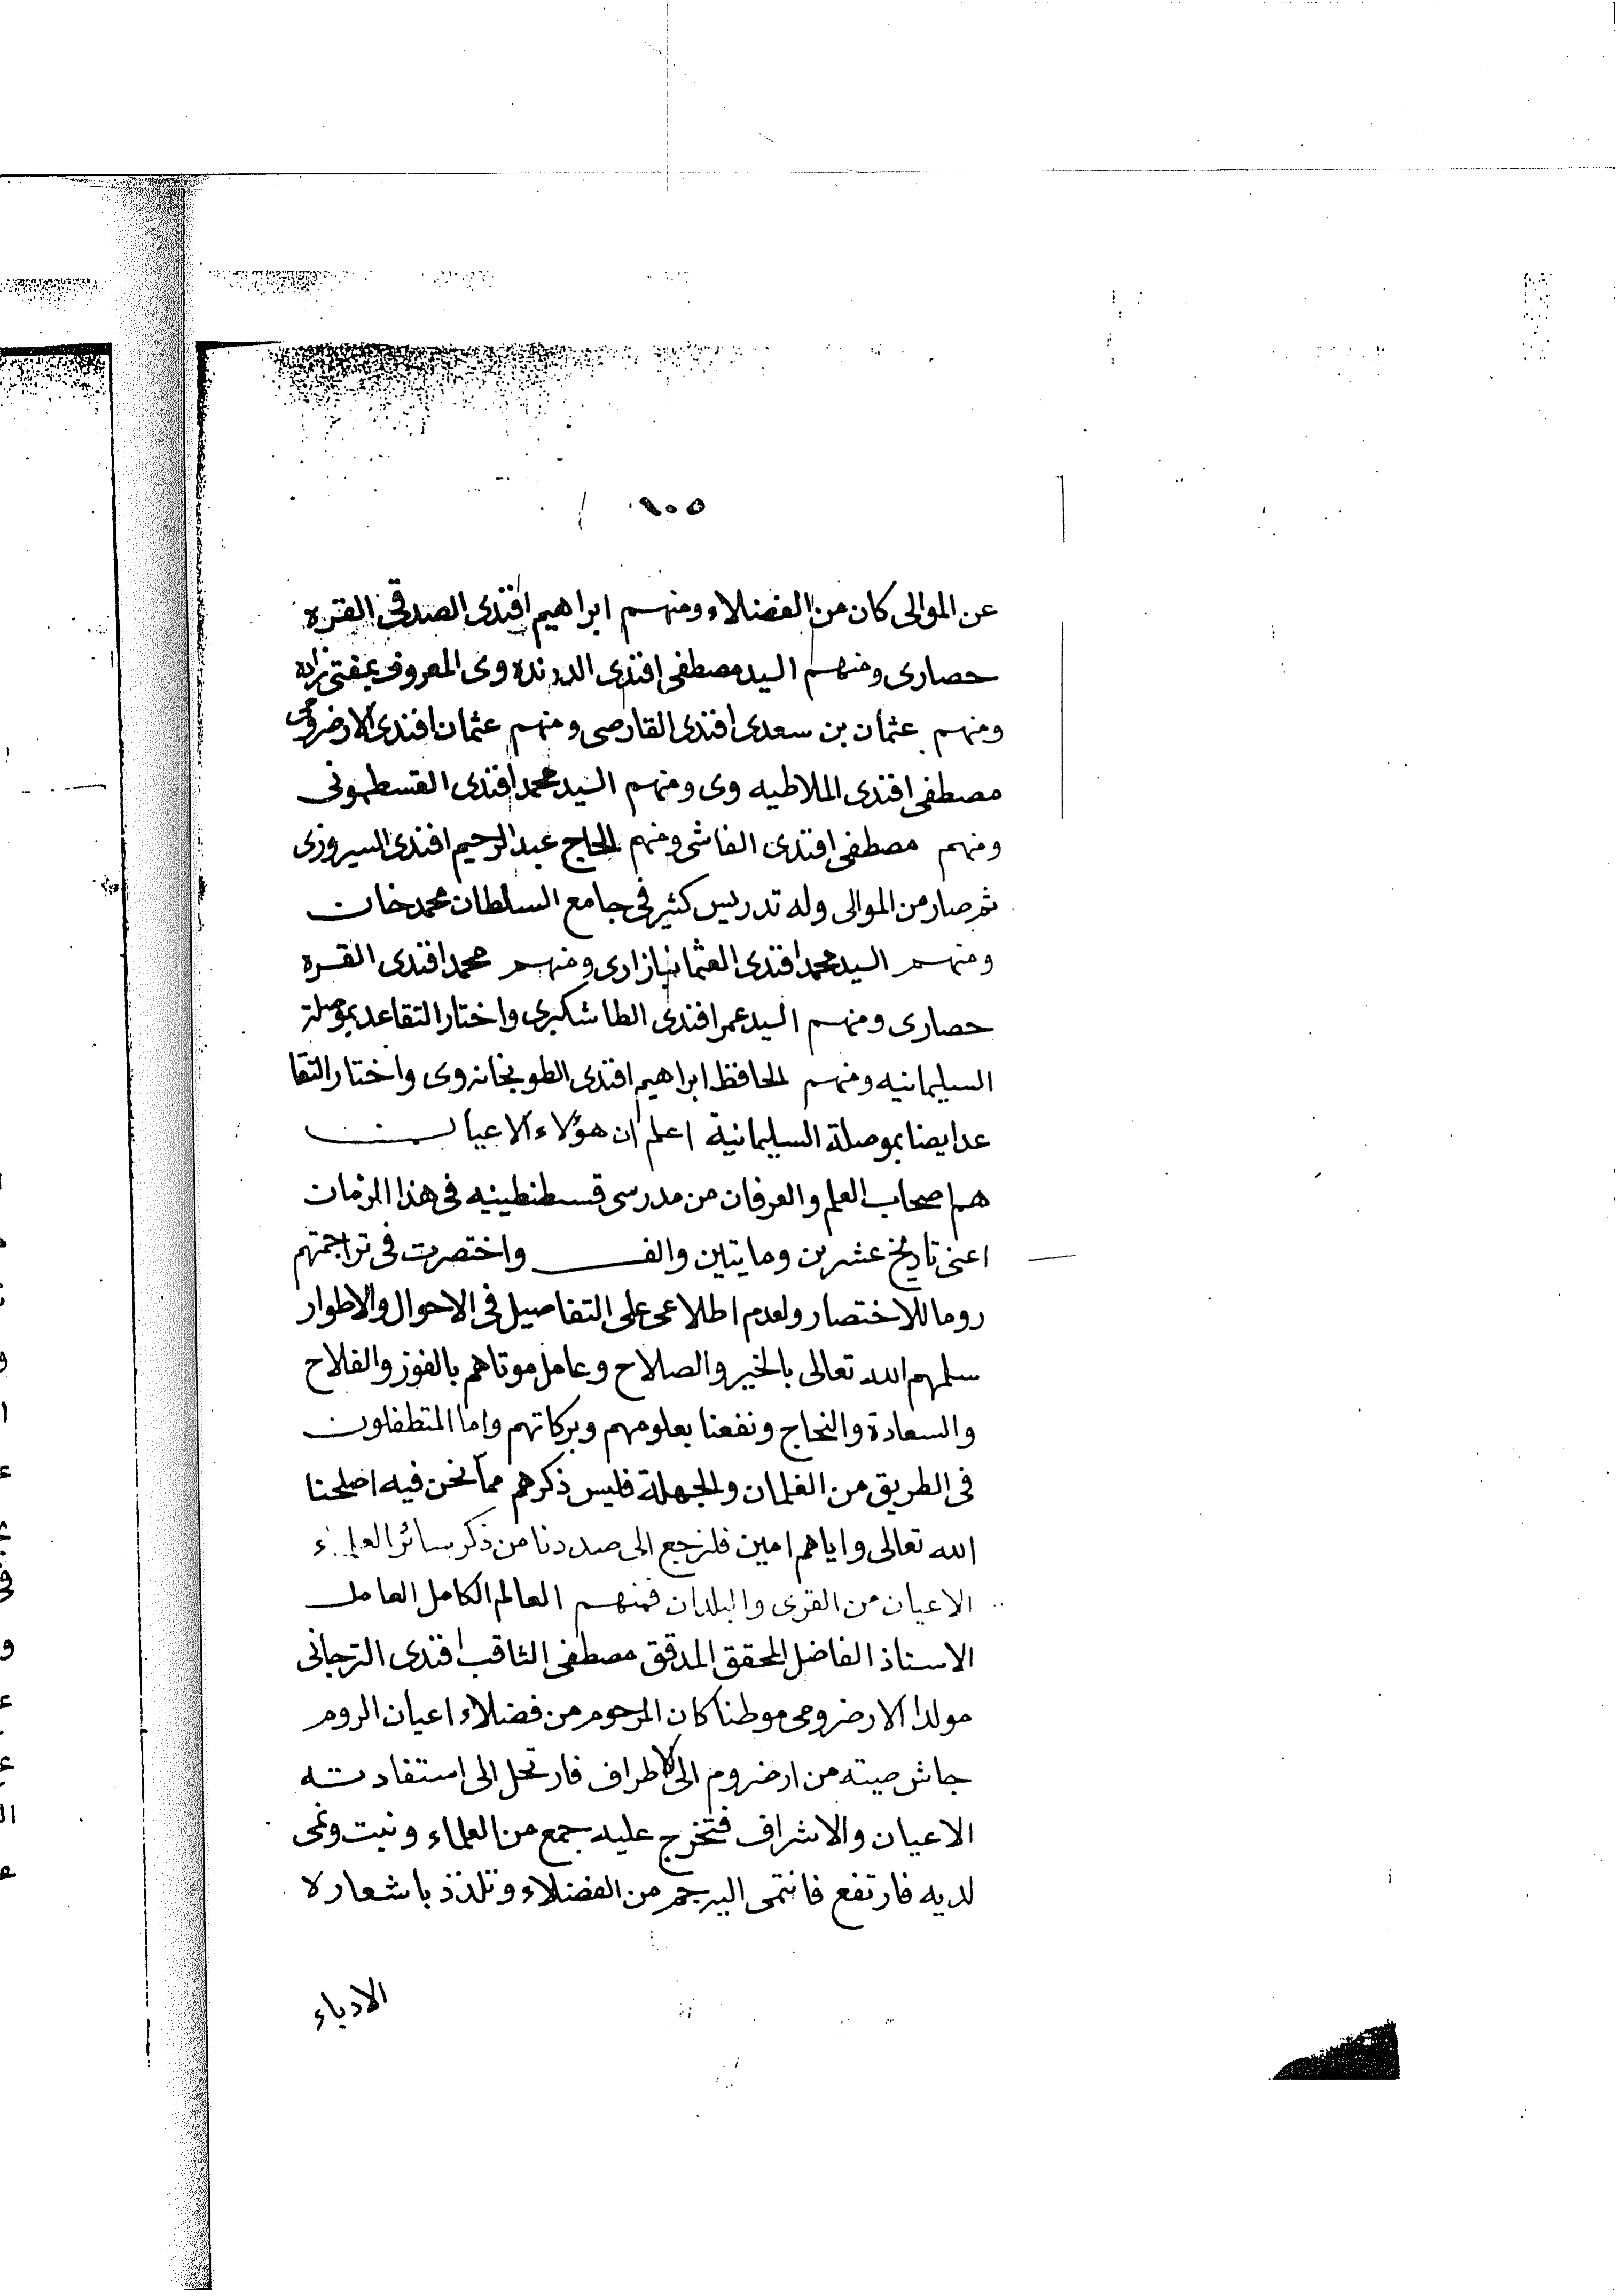 ٩٠٥
عن الموالى كان من الفضلاء ومنهم ابراهيم افندى الصدقى القره
حصارى ومنهم السيد مصطفى افندى الدرنده وى المعروف بمفتى زاده
ومنهم عثمان بن سعدى افندى القارصى ومنهم عثمان افندى الارضرومى
مصطفى افندى الملاطيه وى ومنهم السيد محمد افندى القسطمونى
ومنهم مصطفى افندى الفاشى ومنهم الحاج عبد الرحيم افندى السيروزى
ثم صار من الموالى وله تدريس كثير فى جامع السلطان محمد خان
ومنهم السيد محمد افندى العثمانبازارى ومنهم محمد افندى القره
حصارى ومنهم السيد عمر افندى الطاشكبرى واختار التقاعد بموصلة
السليمانيه ومنهم الحافظ ابراهيم افندى الطوبخانه وى واختار التقا
عد ايضا بموصلة السليمانية اعلم ان هؤلاء الاعيان
هم اصحاب العلم والعرفان من مدرسى قسطنطينيه فى هذا الزمان
اعنى تاريخ عشرين ومايتين والف واختصرت فى تراجمتهم
روما للاختصار ولعدم اطلاعى على التفاصيل فى الاحوال والاطوار
سلمهم الله تعالى بالخير والصلاح وعامل موتاهم بالفوز والفلاح
والسعادة والنجاح ونفعنا بعلومهم وبركاتهم واما المتطفلون
فى الطريق من الغلمان والجهلة فليس ذكرهم مما نحن فيه اصلحنا
الله تعالى واياهم امين فلنرجع الى صددنا من ذكر سائر العلماء
الاعيان من القرى والبلدان فمنهم العالم الكامل العامل
الاستاذ الفاضل المحقق المدقق مصطفى الثاقب افندى الترجانى
مولدا الارضرومى موطنا كان المرحوم من فضلاء اعيان الروم
جاش صيته من ارضروم الى الاطراف فارتحل الى استفادته
الاعيان والاشراف فتخرج عليه جمع من العلماء ونبت ونمى
لديه فارتفع فانتمى اليه جم من الفضلاء وتلذذ باشعاره
الادباء